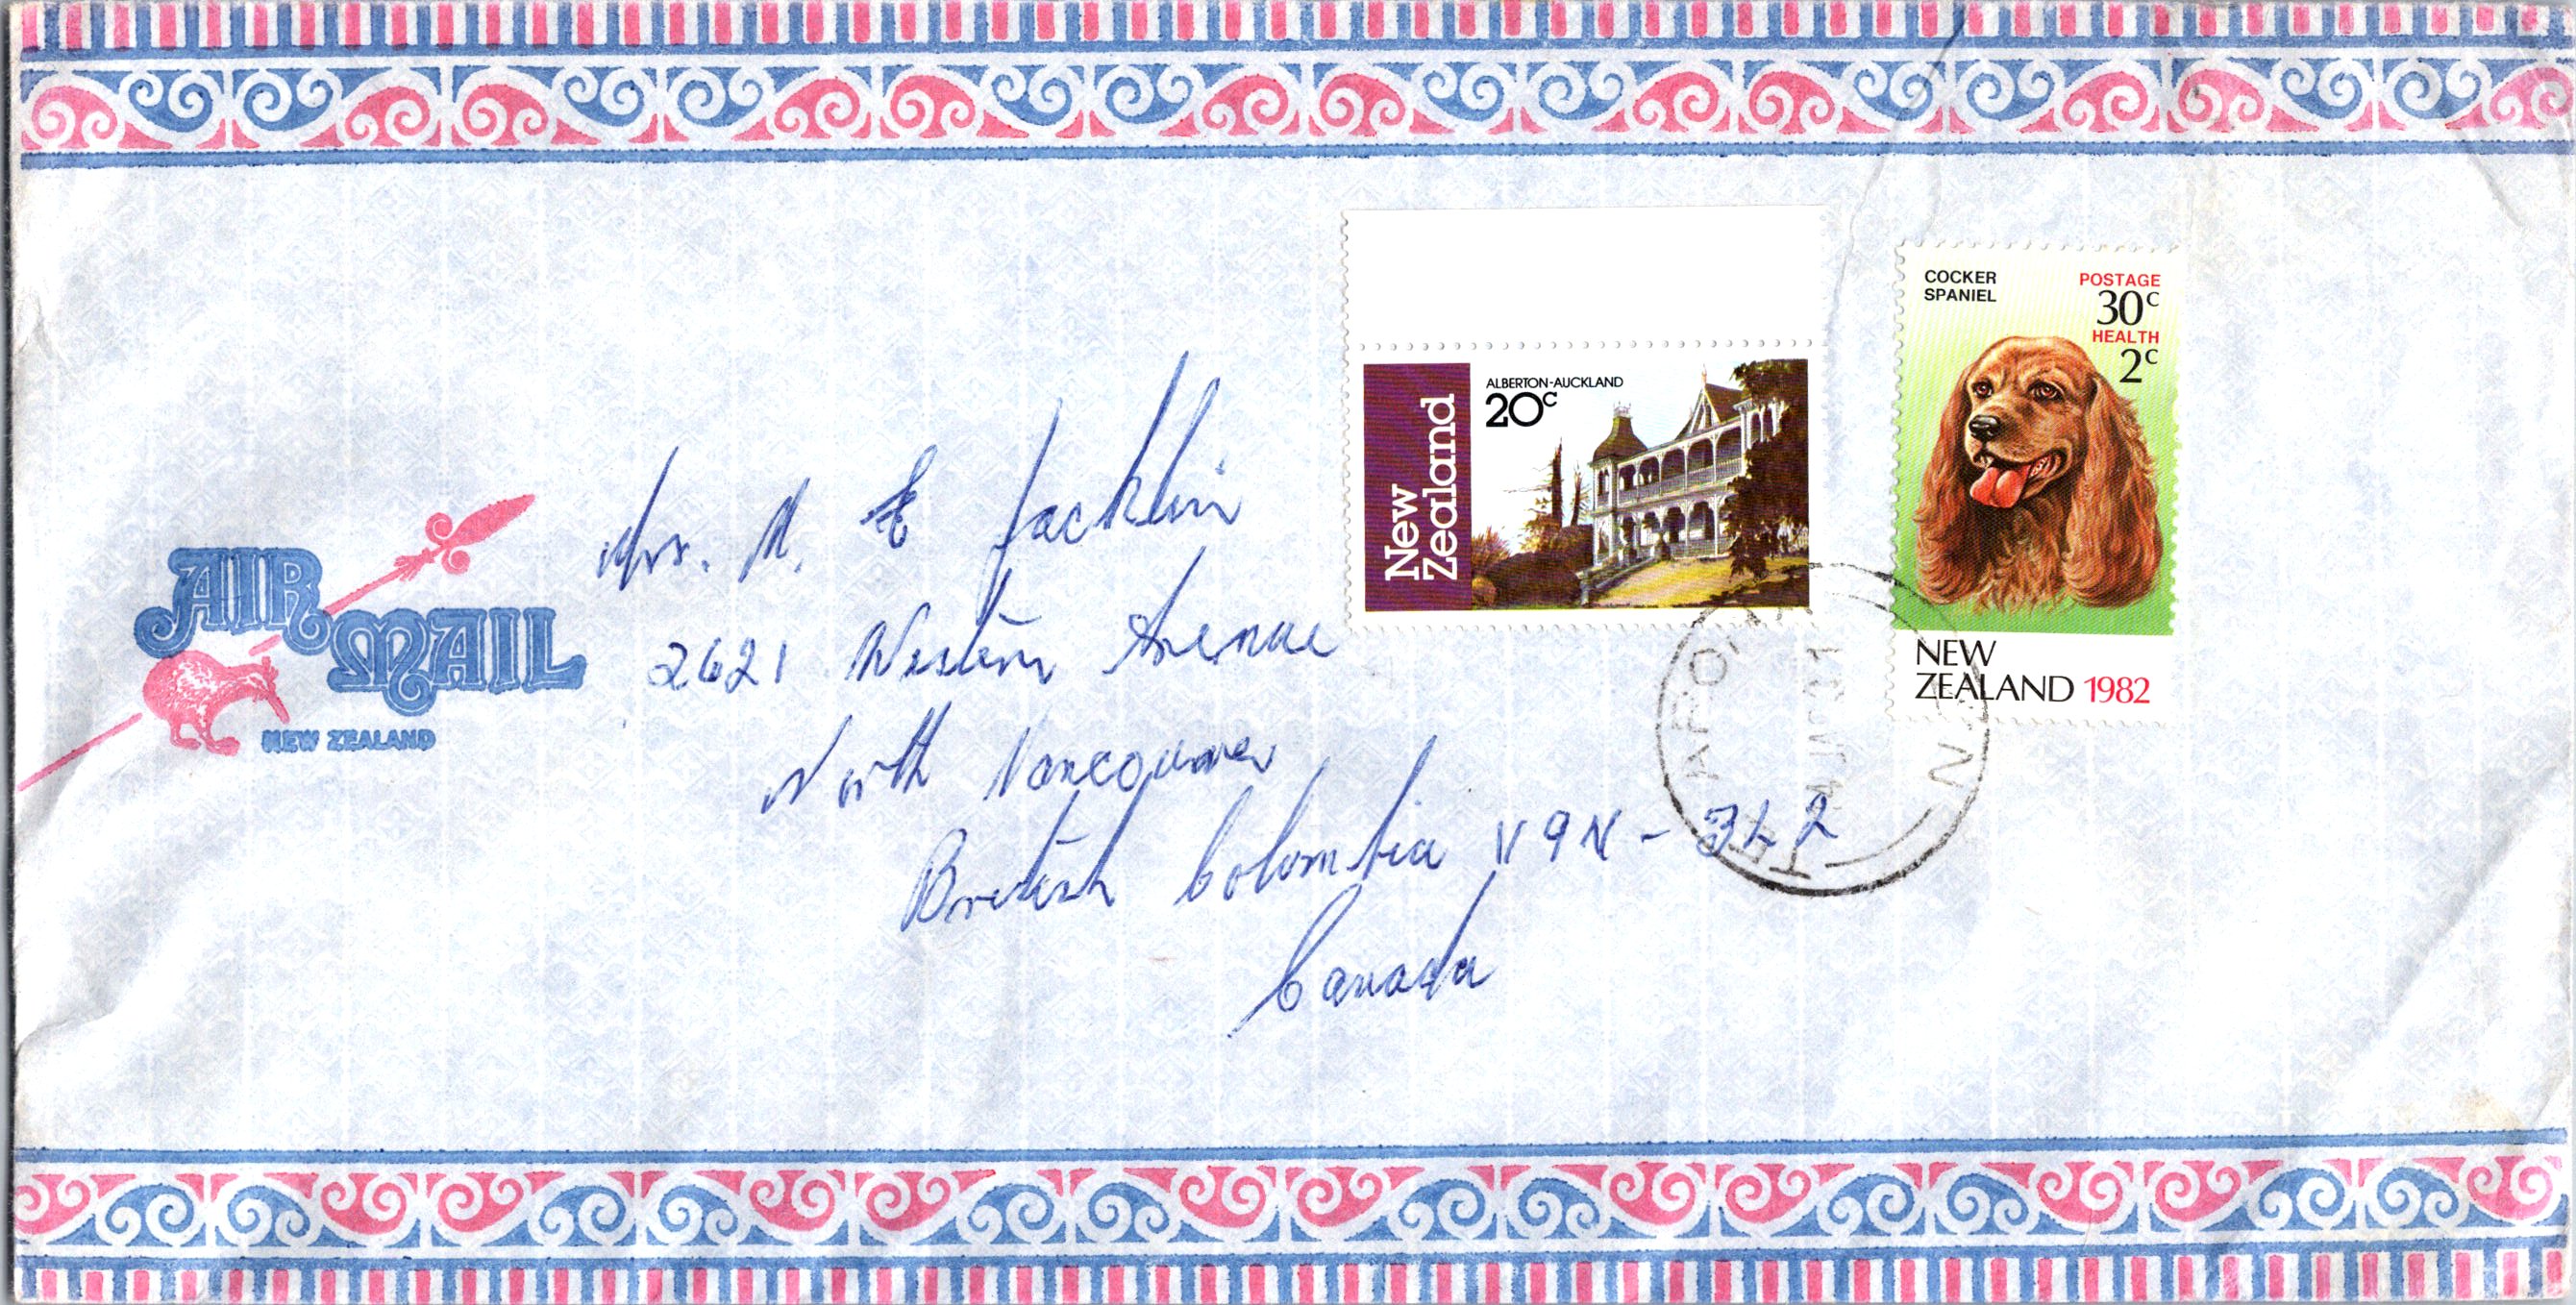 AIR MAIL
NEW ZEALAND
New Zealand
ALBERTON-AUCKLAND
20c
COCKER SPANIEL
POSTAGE
30c
HEALTH
2c
NEW ZEALAND 1982
Mrs. N. E Jacklin
2621 Western Avenue
North Vancouver
British Colombia V9N - 3L2
Canada
N.Z.